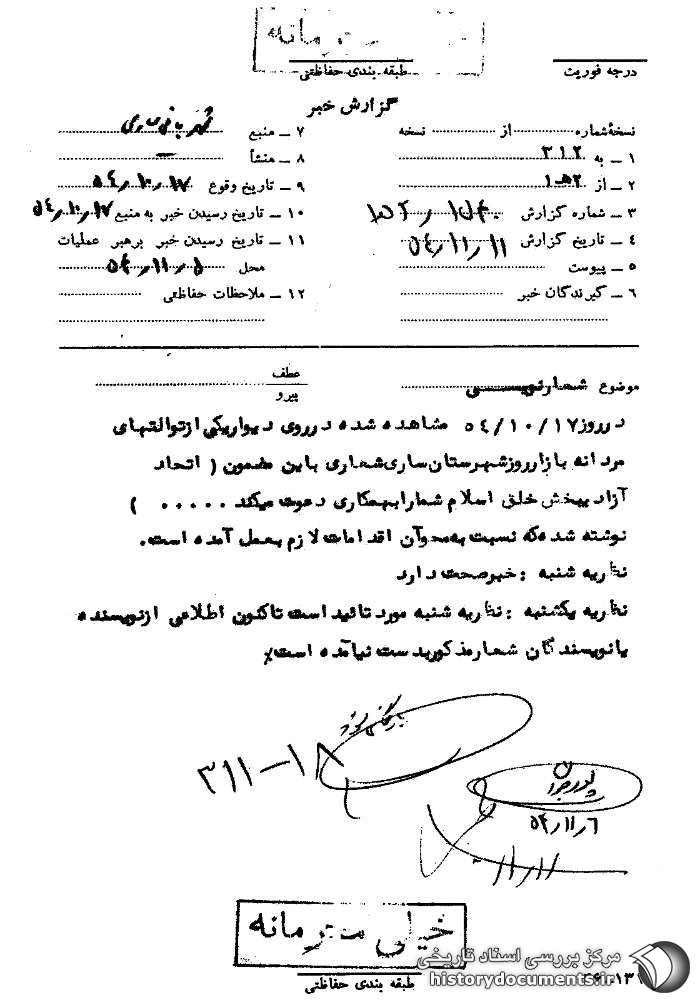 خیلی محرمانه
طبقه بندی حفاظتی
درجه فوریت
گزارش خبر
نسخه‌شماره ........ از ........ نسخه
۱ ــ به ۳۱۲
۲ ــ از ۲ه۱
۳ ــ شماره گزارش
۴ ــ تاریخ گزارش ۵۴٫۱۱٫۱۱
۵ ــ پیوست
۶ ــ گیرندگان خبر
۷ ــ منبع شهربانی ساری
۸ ــ منشأ ــ
۹ ــ تاریخ وقوع ۵۴٫۱۰٫۱۷
۱۰ ــ تاریخ رسیدن خبر به منبع ۵۴٫۱۰٫۱۷
۱۱ ــ تاریخ رسیدن خبر برهبر عملیات
محل ۵۴٫۱۱٫۵
۱۲ ــ ملاحظات حفاظتی
موضوع شعارنویسی
عطف
پیرو
درروز ۵۴/۱۰/۱۷ مشاهده شده درروی دیواریکی ازتوالتهای
مردانه بازارروزشهرستان‌ساری‌شعاری باین مضمون ( اتحاد
آزادیبخش خلق اسلام شمارابهمکاری دعوت میکند ..... )
نوشته شده‌که نسبت به‌محوآن اقدامات لازم بعمل آمده است.
نظریه شنبه : خبرصحت دارد
نظریه یکشنبه : نظریه شنبه مورد تائید است تاکنون اطلاعی ازنویسنده
یانویسندگان شعارمذکوربدست نیآمده است٪
۳۱۱-۱۸
۵۴٫۱۱٫۶
خیلی محرمانه
طبقه بندی حفاظتی
مرکز بررسی اسناد تاریخی
historydocuments.ir